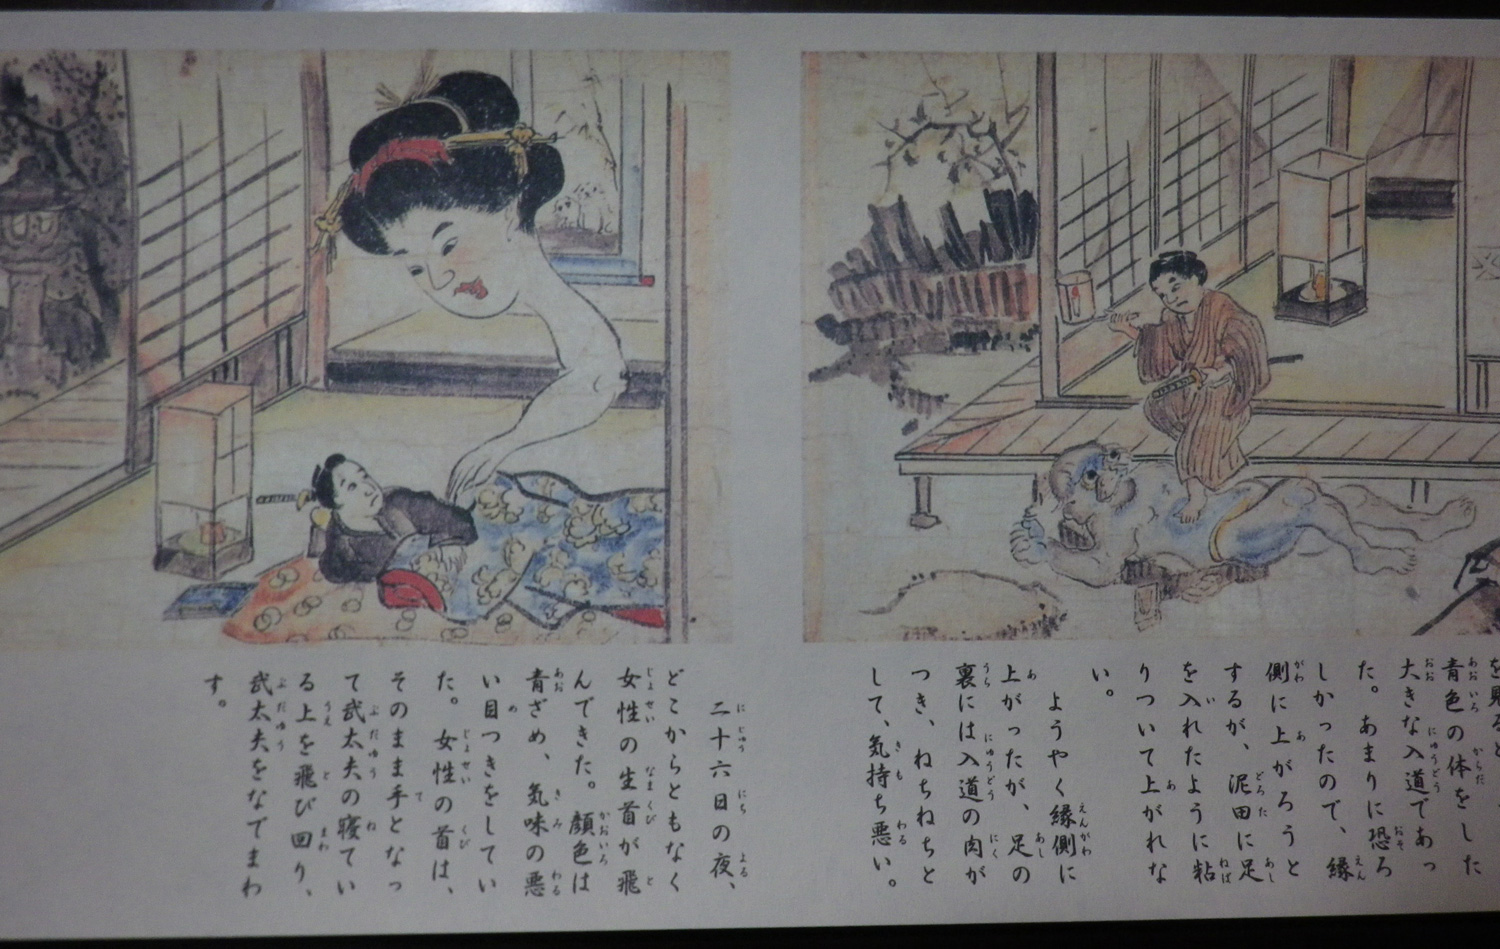 を見ると
青色の体をした
大きな入道であっ
た。あまりに恐ろ
しかったので、縁
側に上がろうと
するが、泥田に足
を入れたように粘
りついて上がれな
い。
ようやく縁側に
上がったが、足の
裏には入道の肉が
つき、ねちねちと
して、気持ち悪い。
二十六日の夜、
どこからともなく
女性の生首が飛
んできた。顔色は
青ざめ、気味の悪
い目つきをしてい
た。女性の首は、
そのまま手となっ
て武太夫の寝てい
る上を飛び回り、
武太夫をなでまわ
す。